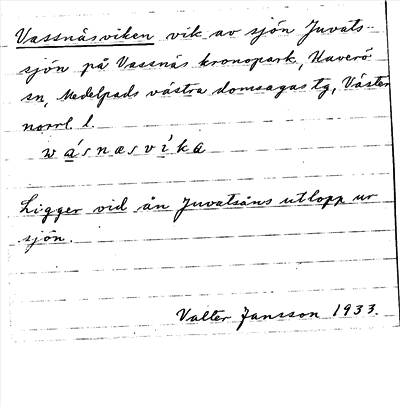 Vassnäsviken vik av sjön Juvats-
sjön på Vassnäs kronopark, Haverö
sn, Medelpads västra domsagas tg, Väster
norrl. l.
wásnæsvìka
Ligger vid ån Juvatsåns utlopp ur
sjön.
Valter Jansson 1933.